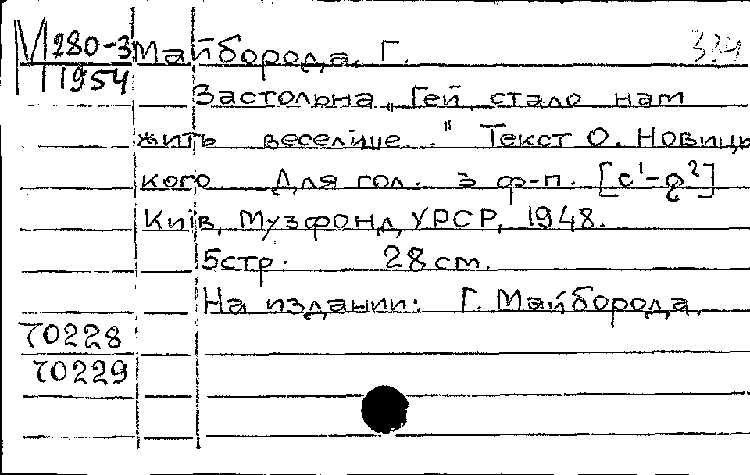 М280-3 Майборода, Г. 334
1954
Застольна „Гей, стало нам
жить веселіше." Текст О. Новиць
кого Для гол. з ф-п. [c¹-g²]
Київ, Музфонд УРСР, 1948.
5стр. 28 cm.
На издании: Г. Майборода
70228
70229